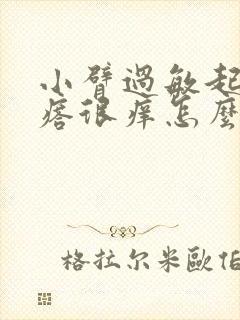 小臂過敏起
痞很痒怎麼
格拉尔米歐伯